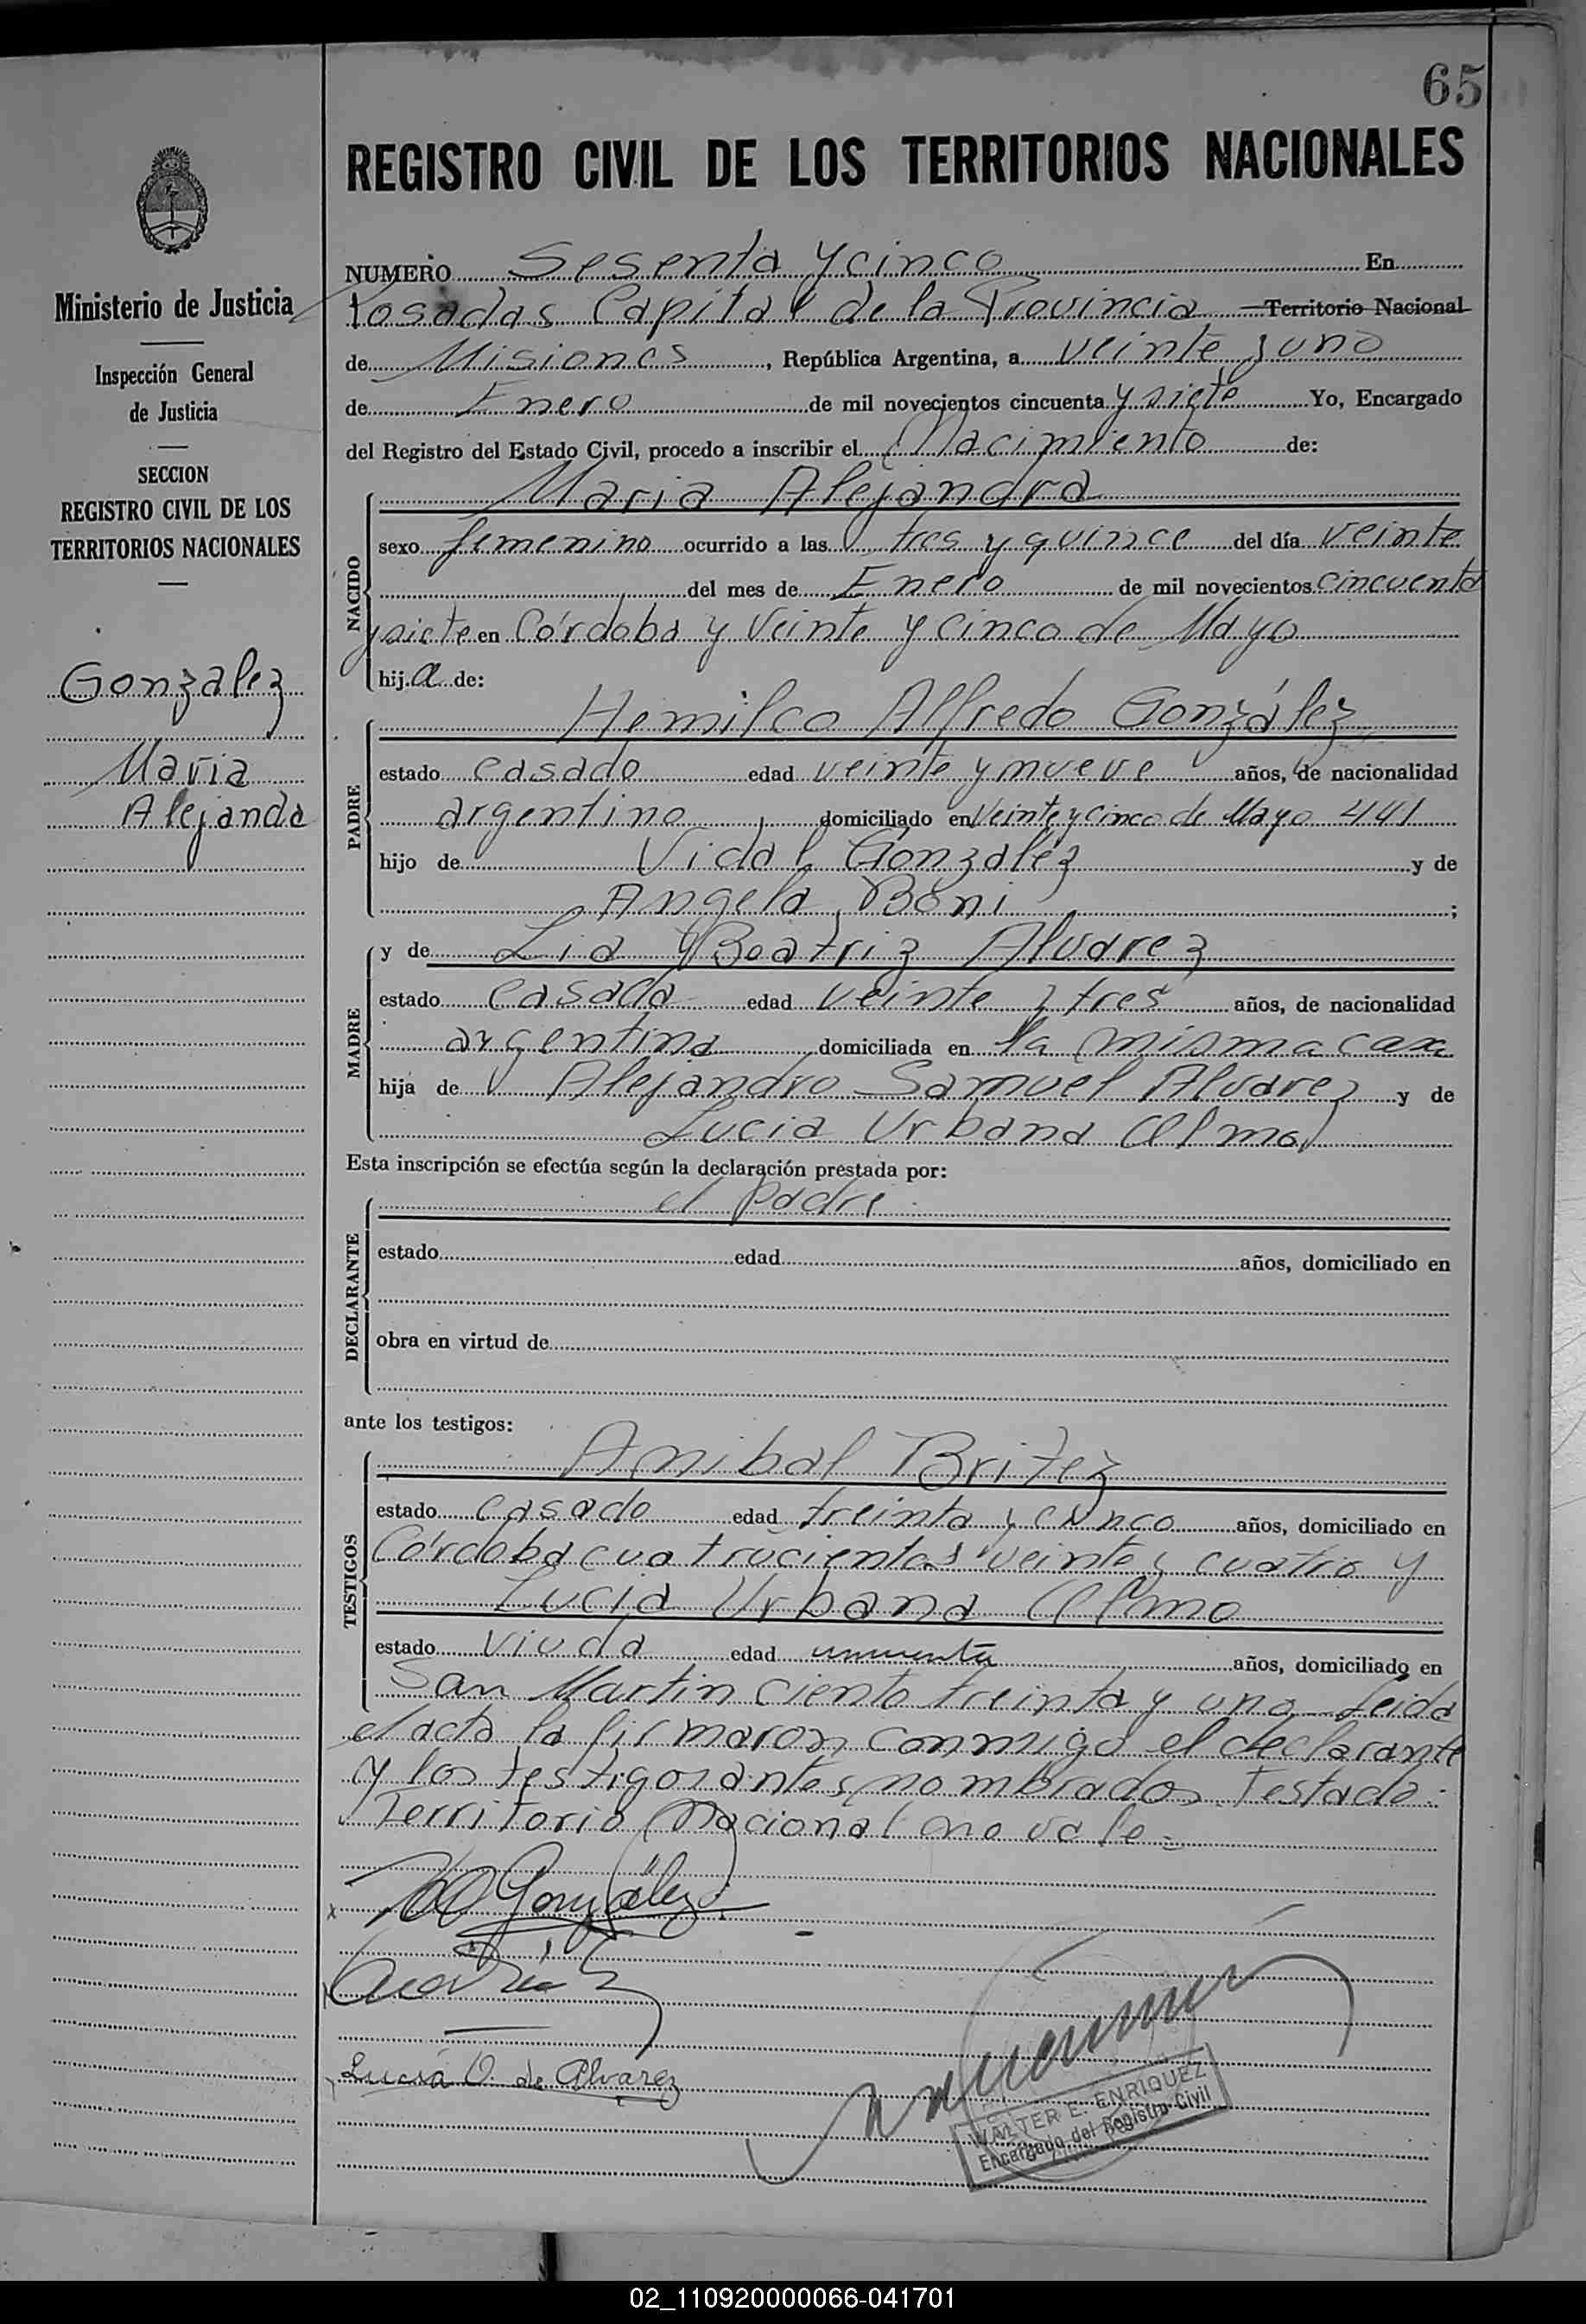 65
REGISTRO CIVIL DE LOS TERRITORIOS NACIONALES
Ministerio de Justicia
Inspección General
de Justicia
SECCION
REGISTRO CIVIL DE LOS
TERRITORIOS NACIONALES
Gonzalez
Maria
Alejanda
NUMERO Sesenta y cinco En
Posadas Capital de la Provincia Territorio Nacional
de Misiones, República Argentina, a veinte y uno
de Enero de mil novecientos cincuenta y siete Yo, Encargado
del Registro del Estado Civil, procedo a inscribir el Nacimiento de:
NACIDO
Maria Alejandra
sexo femenino ocurrido a las tres y quince del día veinte
del mes de Enero de mil novecientos cincuenta
y siete en Córdoba y Veinte y cinco de Mayo
hija de:
PADRE
Hemilco Alfredo González
estado casado edad veinte y nueve años, de nacionalidad
argentino domiciliado en Veinte y cinco de Mayo 441
hijo de Vidal Gonzaléz y de
Angela Boni ;
MADRE
y de Lia Beatriz Alvarez
estado casada edad veinte y tres años, de nacionalidad
argentina domiciliada en la misma casa
hija de Alejandro Samuel Alvarez y de
Lucia Urbana Olmo
Esta inscripción se efectúa según la declaración prestada por:
DECLARANTE
el padre
estado edad años, domiciliado en
obra en virtud de
ante los testigos:
TESTIGOS
Anibal Britez
estado casado edad treinta y cinco años, domiciliado en
Córdoba cuatrocientos veinte y cuatro y
Lucia Urbana Olmo
estado viuda edad años, domiciliado en
San Martin ciento treinta y uno Leida
el acta la firmaron conmigo el declarante
y los testigos antes nombrados. Testado:
Territorio Nacional no vale.
González
Lucia O. de Alvarez
WALTER E. ENRIQUEZ
Encargado del Registro Civil
02_110920000066-041701